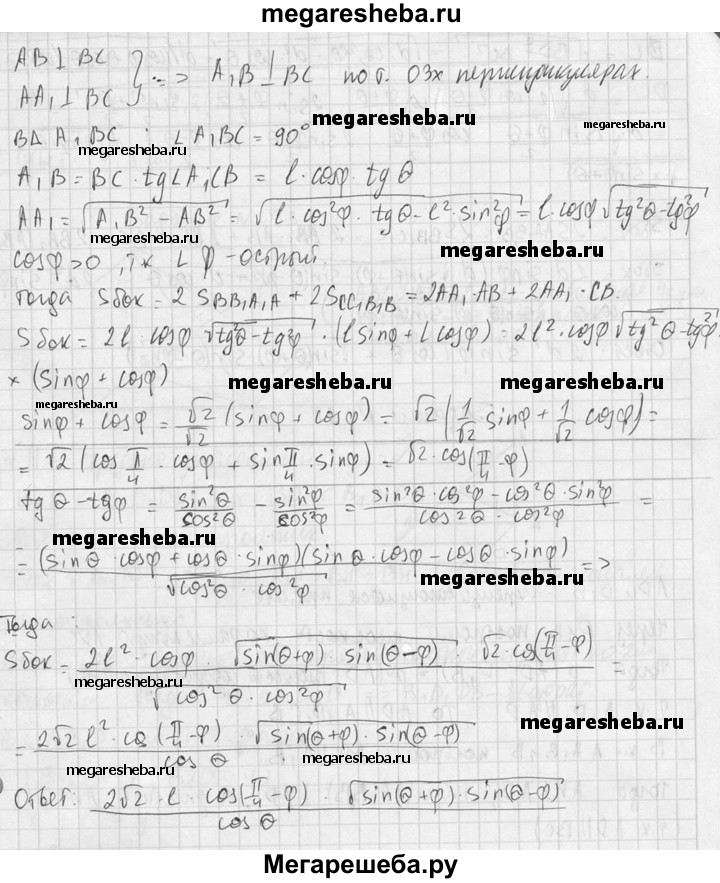 megaresheba.ru
AB ⊥ BC
AA₁ ⊥ BC } => A₁B ⊥ BC по т. О 3х перпендикулярах.
megaresheba.ru
В Δ A₁BC : ∠A₁BC = 90°
megaresheba.ru
A₁B = BC · tg∠A₁CB = l · cosφ · tgθ
AA₁ = √(A₁B² − AB²) = √(l · cos²φ · tgθ − l² · sin²φ) = l · cosφ √(tg²θ − tg²φ)
megaresheba.ru megaresheba.ru
cosφ > 0, т.к ∠φ - острый.
Тогда Sбок = 2 S_BB₁A₁A + 2S_CC₁B₁B = 2AA₁ · AB + 2AA₁ · CB.
Sбок = 2l · cosφ √(tg²θ − tg²φ) · (l sinφ + l cosφ) = 2l² · cosφ √(tg²θ − tg²φ) ×
× (sinφ + cosφ)
megaresheba.ru megaresheba.ru
megaresheba.ru
sinφ + cosφ = √2/√2 (sinφ + cosφ) = √2 (1/√2 sinφ + 1/√2 cosφ) =
= √2 (cos π/4 · cosφ + sin π/4 · sinφ) = √2 · cos(π/4 − φ)
tgθ − tgφ = sin²θ/cos²θ − sin²φ/cos²φ = (sin²θ · cos²φ − cos²θ · sin²φ)/(cos²θ · cos²φ) =
megaresheba.ru
= (sinθ · cosφ + cosθ · sinφ)(sinθ · cosφ − cosθ · sinφ)/√(cos²θ · cos²φ) =>
megaresheba.ru
Тогда :
Sбок = 2l² · cosφ · √(sin(θ+φ) · sin(θ−φ)) · √2 · cos(π/4 − φ)/√(cos²θ · cos²φ) =
megaresheba.ru
megaresheba.ru
= 2√2 l² · cos(π/4 − φ) · √(sin(θ+φ) · sin(θ−φ))/cosθ
megaresheba.ru megaresheba.ru
Ответ: 2√2 · l · cos(π/4 − φ) · √(sin(θ+φ) · sin(θ−φ))/cosθ
Мегарешеба.ру